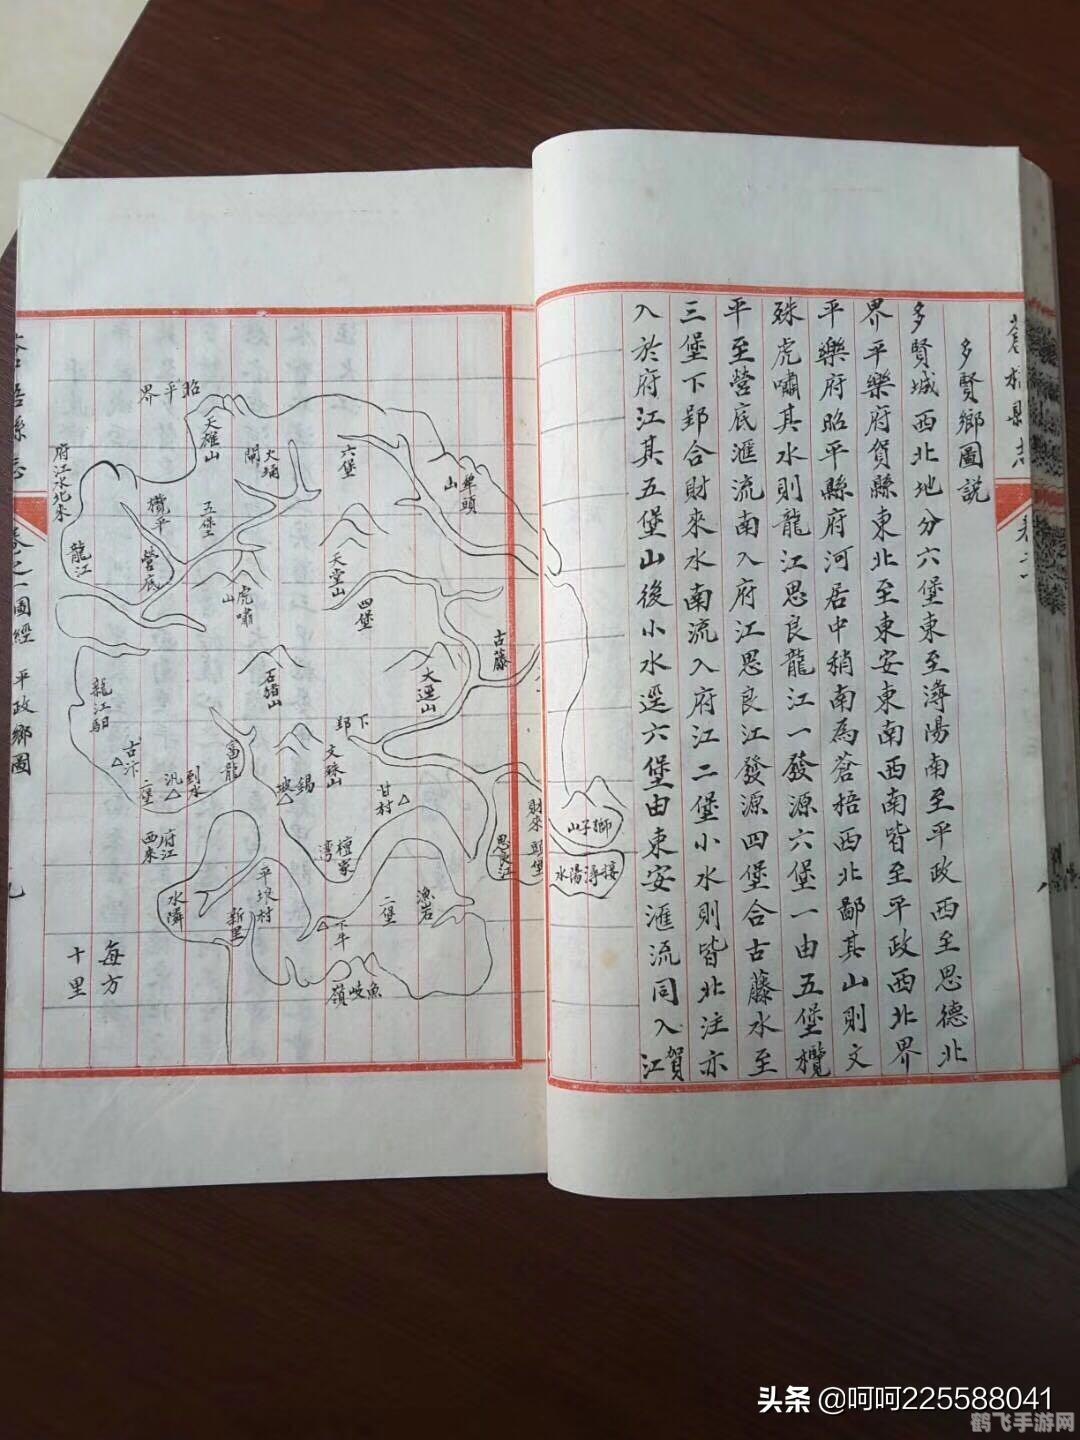 蒼梧縣志
卷二
多賢鄉圖說
多賢城西北地分六堡東至潯陽南至平政西至思德北
界平樂府賀縣東北至東安東南西南皆至平政西北界
平樂府昭平縣府河居中稍南為蒼梧西北鄙其山則文
殊虎嘯其水則龍江思良龍江一發源六堡一由五堡欖
平至營底滙流南入府江思良江發源四堡合古藤水至
三堡下郢合財來水南流入府江二堡小水則皆北注亦
入於府江其五堡山後小水逕六堡由東安滙流同入賀
江
昭平界
天雄山
大埇
閘
六堡
單頭山
府江水北來
欖平
五堡
龍江
營底
虎嘯山
天堂山
四堡
古藤
石猪山
大逕山
龍江馹
下郢
文殊山
富龍
古汴
二堡
到水汛
錫坡
甘村
財來
頭堡
思良江
獅子山
接潯陽水
府江西來
檀家灣
水隣
平埌村
新里
下牛
二堡
漁岩
魚岐嶺
每方
十里
蒼梧縣志
卷之一圖經
平政鄉圖
九
八
头条 @呵呵225588041
鹤飞手游网